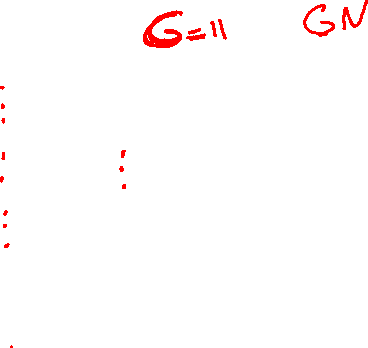 G=11 GN